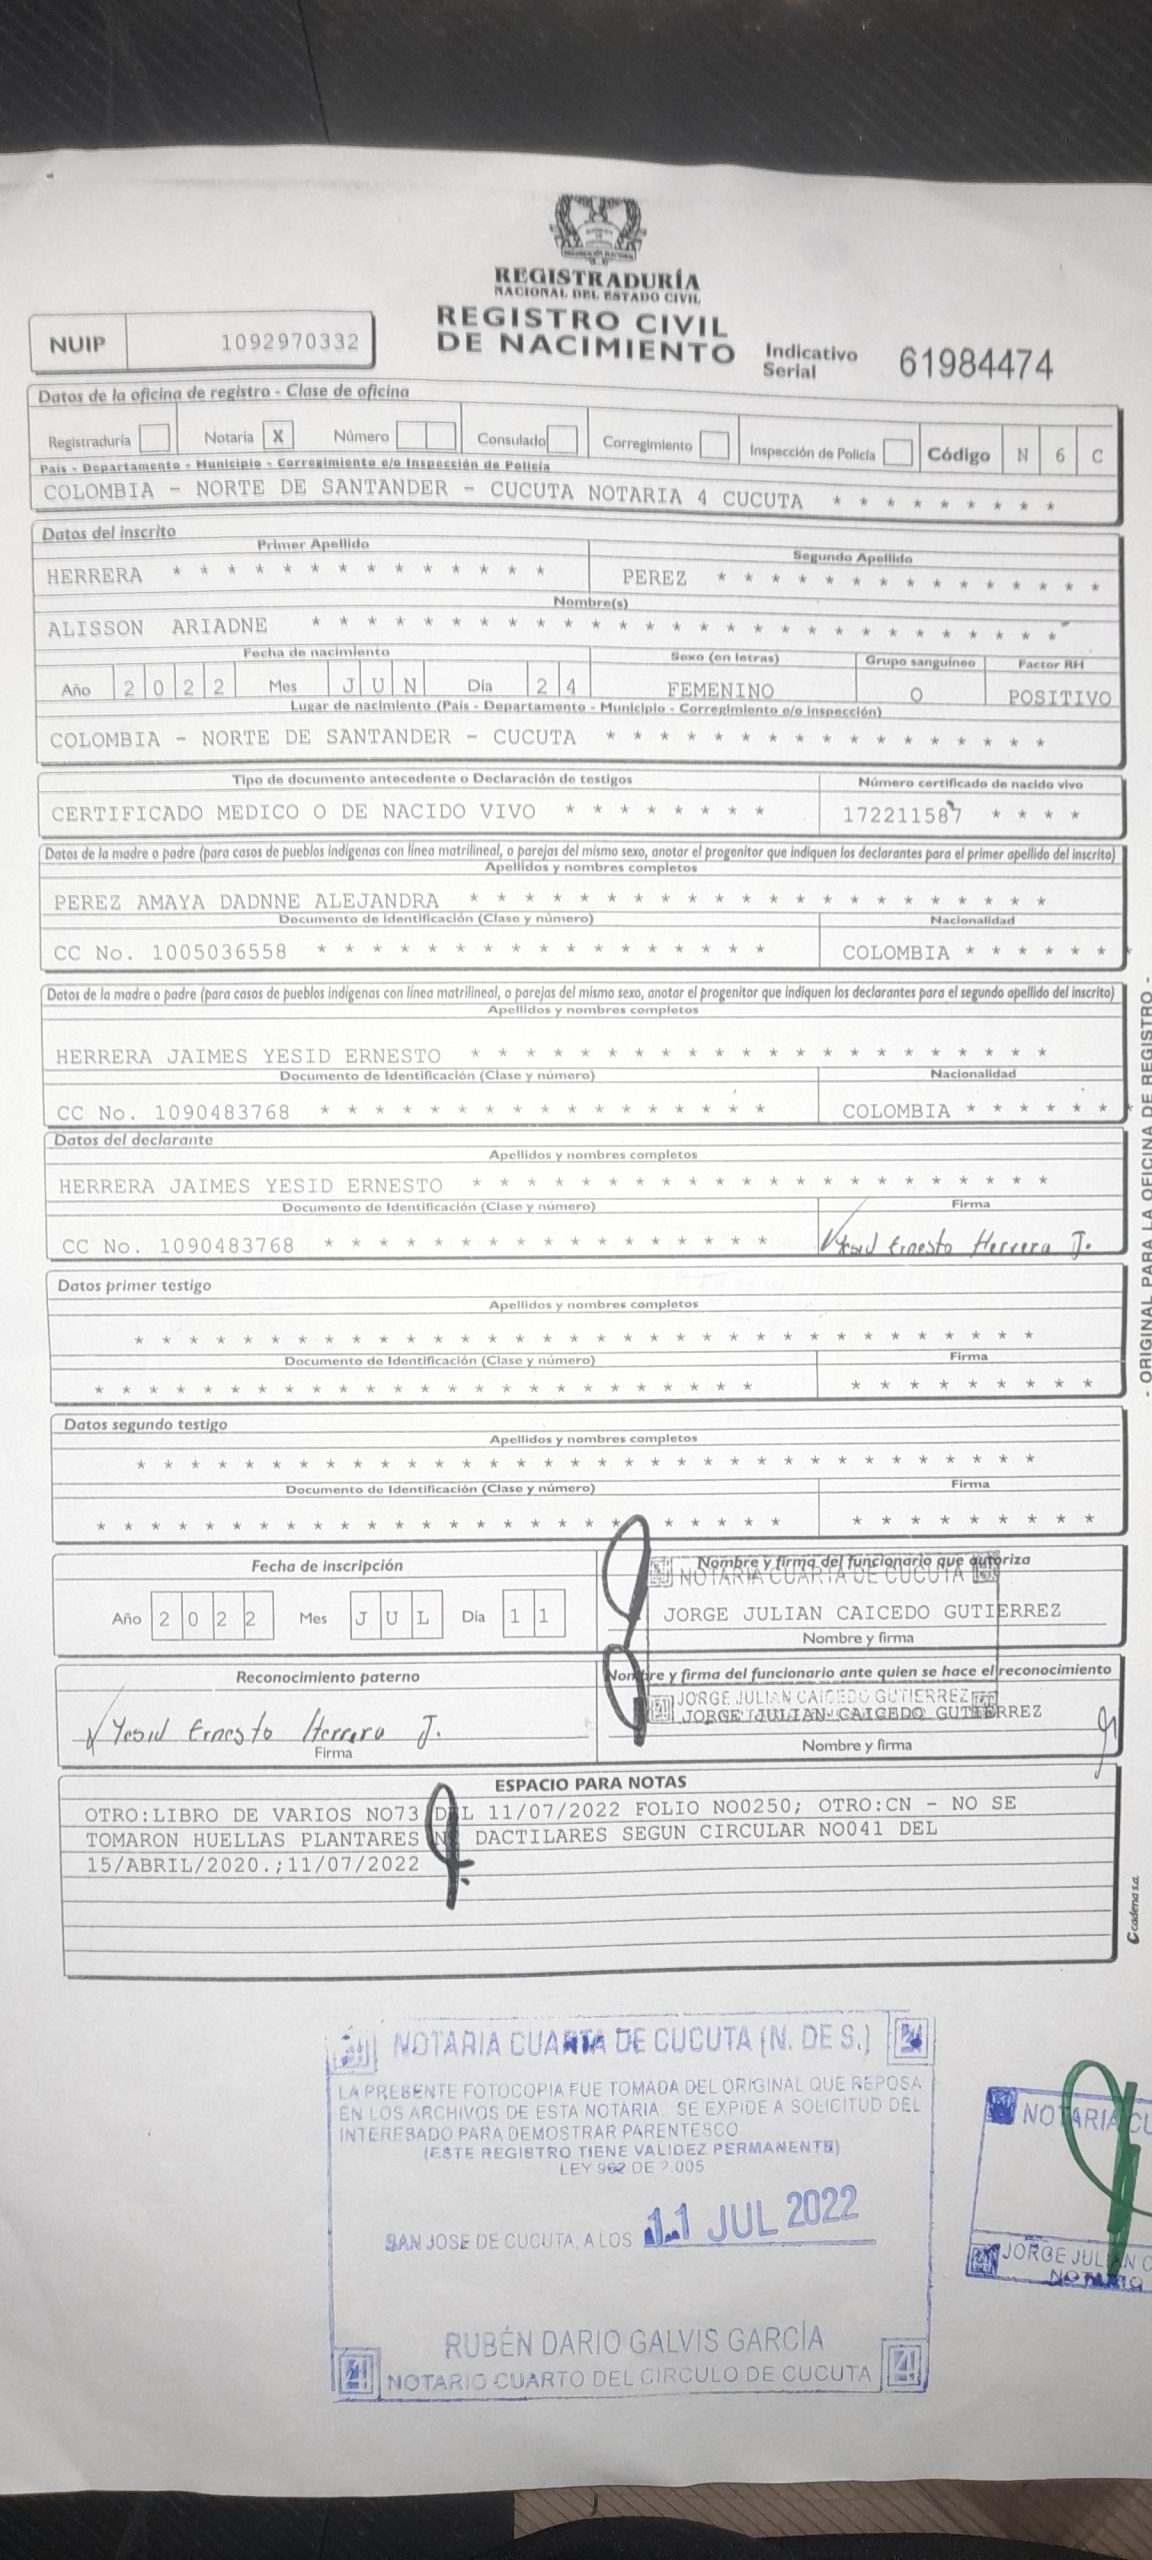 REGISTRADURÍA
NACIONAL DEL ESTADO CIVIL
REGISTRO CIVIL
DE NACIMIENTO
NUIP 1092970332
Indicativo Serial 61984474
Datos de la oficina de registro - Clase de oficina
Registraduría Notaría X Número Consulado Corregimiento Inspección de Policía Código N 6 C
País - Departamento - Municipio - Corregimiento e/o Inspección de Policía
COLOMBIA - NORTE DE SANTANDER - CUCUTA NOTARIA 4 CUCUTA * * * * * * * * *
Datos del inscrito
Primer Apellido Segundo Apellido
HERRERA * * * * * * * * * * * * * * PEREZ * * * * * * * * * * * * * * *
Nombre(s)
ALISSON ARIADNE * * * * * * * * * * * * * * * * * * * * * * * * * * * *
Fecha de nacimiento Sexo (en letras) Grupo sanguíneo Factor RH
Año 2 0 2 2 Mes J U N Día 2 4 FEMENINO O POSITIVO
Lugar de nacimiento (País - Departamento - Municipio - Corregimiento e/o inspección)
COLOMBIA - NORTE DE SANTANDER - CUCUTA * * * * * * * * * * * * * * * * *
Tipo de documento antecedente o Declaración de testigos Número certificado de nacido vivo
CERTIFICADO MEDICO O DE NACIDO VIVO * * * * * * * * 172211587 * * * *
Datos de la madre o padre (para casos de pueblos indígenas con línea matrilineal, o parejas del mismo sexo, anotar el progenitor que indiquen los declarantes para el primer apellido del inscrito)
Apellidos y nombres completos
PEREZ AMAYA DADNNE ALEJANDRA * * * * * * * * * * * * * * * * * * * * * *
Documento de Identificación (Clase y número) Nacionalidad
CC No. 1005036558 * * * * * * * * * * * * * * * * * COLOMBIA * * * * * * *
Datos de la madre o padre (para casos de pueblos indígenas con línea matrilineal, o parejas del mismo sexo, anotar el progenitor que indiquen los declarantes para el segundo apellido del inscrito)
Apellidos y nombres completos
HERRERA JAIMES YESID ERNESTO * * * * * * * * * * * * * * * * * * * * * *
Documento de Identificación (Clase y número) Nacionalidad
CC No. 1090483768 * * * * * * * * * * * * * * * * * COLOMBIA * * * * * * *
Datos del declarante
Apellidos y nombres completos
HERRERA JAIMES YESID ERNESTO * * * * * * * * * * * * * * * * * * * * * *
Documento de Identificación (Clase y número) Firma
CC No. 1090483768 * * * * * * * * * * * * * * * * * Yesid Ernesto Herrera J.
Datos primer testigo
Apellidos y nombres completos
* * * * * * * * * * * * * * * * * * * * * * * * * * * * * * * * * *
Documento de Identificación (Clase y número) Firma
* * * * * * * * * * * * * * * * * * * * * * * * * * * * * * * * * *
Datos segundo testigo
Apellidos y nombres completos
* * * * * * * * * * * * * * * * * * * * * * * * * * * * * * * * * *
Documento de Identificación (Clase y número) Firma
* * * * * * * * * * * * * * * * * * * * * * * * * * * * * * * * * * *
Fecha de inscripción Nombre y firma del funcionario que autoriza
NOTARIA CUARTA DE CUCUTA
Año 2 0 2 2 Mes J U L Día 1 1 JORGE JULIAN CAICEDO GUTIERREZ
Nombre y firma
Reconocimiento paterno Nombre y firma del funcionario ante quien se hace el reconocimiento
JORGE JULIAN CAICEDO GUTIERREZ
Yesid Ernesto Herrera J. JORGE JULIAN CAICEDO GUTIERREZ
Firma Nombre y firma
ESPACIO PARA NOTAS
OTRO:LIBRO DE VARIOS NO73 DEL 11/07/2022 FOLIO NO0250; OTRO:CN - NO SE
TOMARON HUELLAS PLANTARES NI DACTILARES SEGUN CIRCULAR NO041 DEL
15/ABRIL/2020.;11/07/2022
- ORIGINAL PARA LA OFICINA DE REGISTRO -
cadena s.a.
NOTARIA CUARTA DE CUCUTA (N. DE S.)
LA PRESENTE FOTOCOPIA FUE TOMADA DEL ORIGINAL QUE REPOSA
EN LOS ARCHIVOS DE ESTA NOTARIA. SE EXPIDE A SOLICITUD DEL
INTERESADO PARA DEMOSTRAR PARENTESCO
(ESTE REGISTRO TIENE VALIDEZ PERMANENTE)
LEY 962 DE 2.005
SAN JOSE DE CUCUTA, A LOS 11 JUL 2022
RUBÉN DARIO GALVIS GARCÍA
NOTARIO CUARTO DEL CIRCULO DE CUCUTA
NOTARIA CU
JORGE JULIAN C
NOTARIO